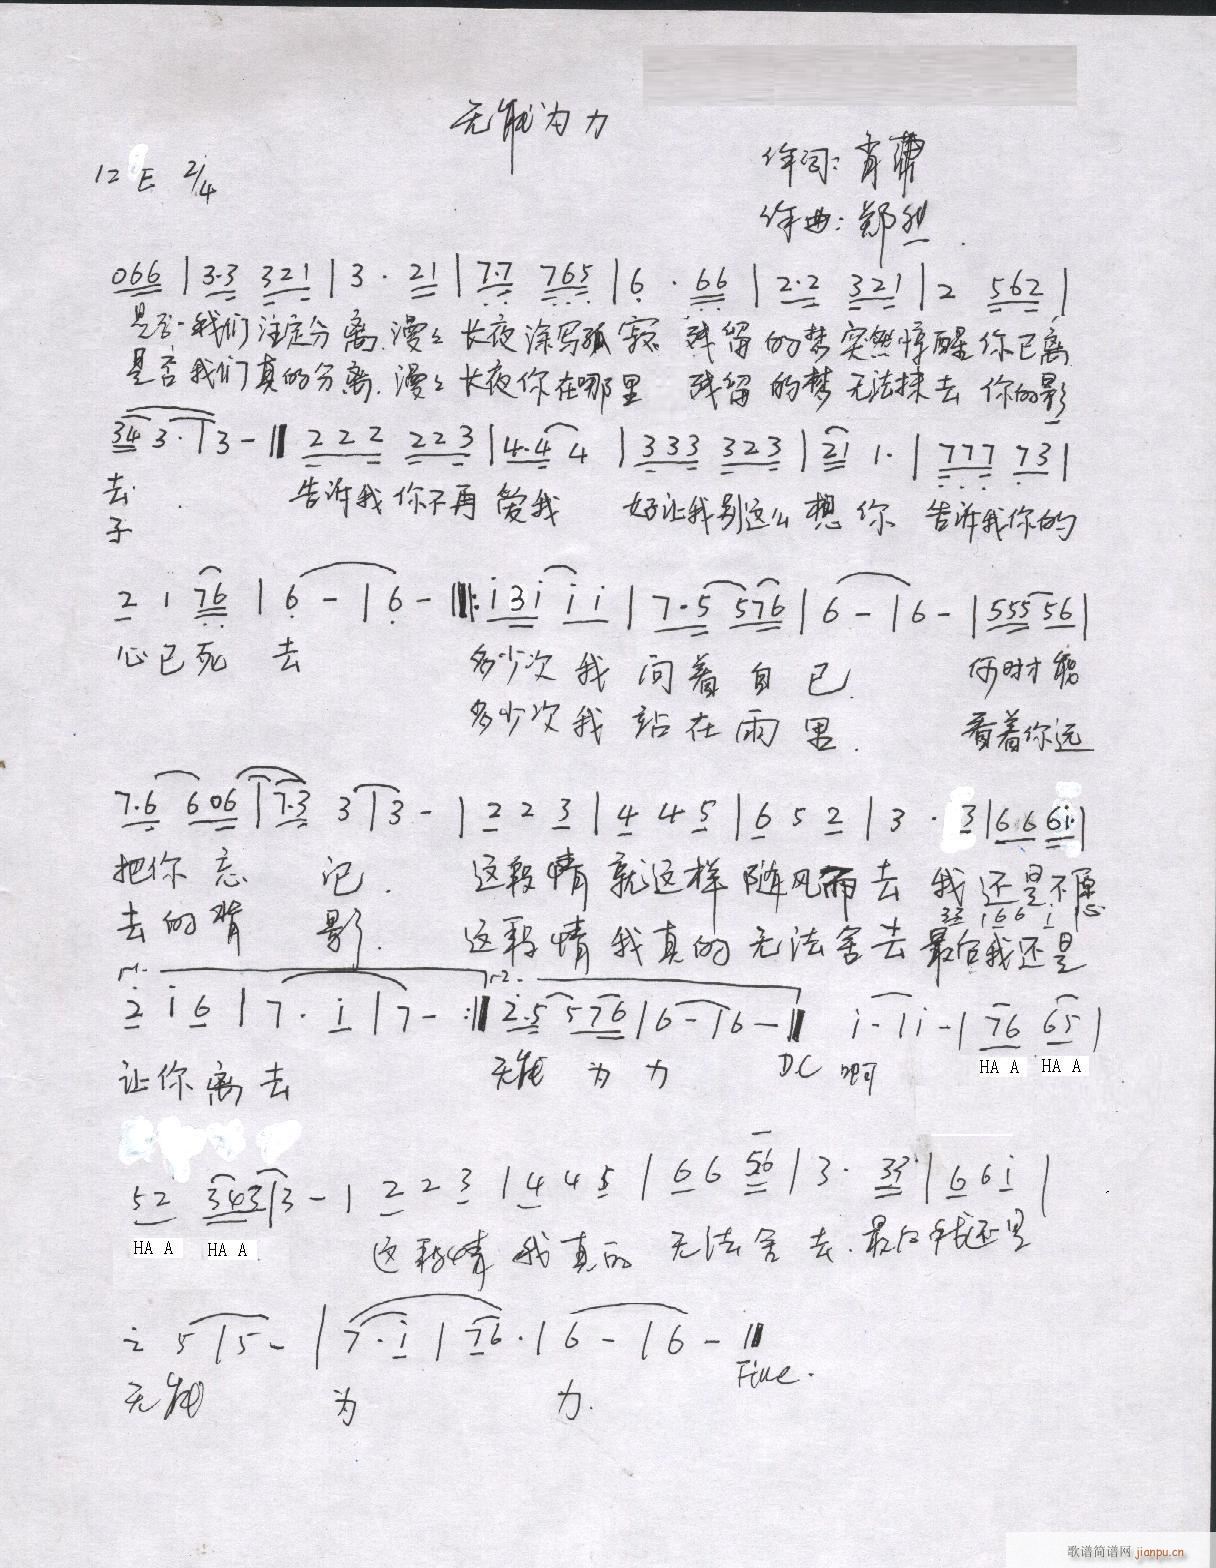 无能为力
1=E 2/4
作词:肖
作曲:郑
066 | 3·3 321 | 3 · 21 | 7·7 765 | 6 · 66 | 2·2 321 | 2 562 |
是否我们注定分离 漫漫长夜涂写孤寂 残留的梦突然惊醒你已离
是否我们真的分离 漫漫长夜你在哪里 残留的梦无法抹去 你的影
34 3· | 3 - || 222 223 | 4·4 4 | 333 323 | 21 1· | 777 73 |
去 告诉我你不再爱我 好让我别这么想你 告诉我你的
子
2 1 76 | 6 - | 6 - ||: i3i i i | 7·5 576 | 6 - | 6 - | 555 56 |
心已死去 多少次我问着自已 何时才能
多少次我站在雨里. 看着你远
7·6 606 | 7·3 3 | 3 - | 2 2 3 | 4 4 5 | 6 5 2 | 3 · 3 | 66 6i· |
把你忘记. 这段情就这样随风而去 我还是不愿
33 166 i
去的背影. 这段情我真的无法舍去 最后我还是
1. 2.
2 i 6 | 7 · i | 7 - :|| 2·5 576 | 6 - | 6 - || i - | i - | 76 65 |
让你离去 无能为力 DC 啊 HA A HA A
52 343 | 3 - | 2 2 3 | 4 4 5 | 6 6 56 | 3 · 33 | 6 6 i |
HA A HA A 这段情我真的无法舍去.最后我还是
2 5 | 5 - | 7 · i | 76 · | 6 - | 6 - ||
无能为力. Fine.
歌谱简谱网 jianpu.cn